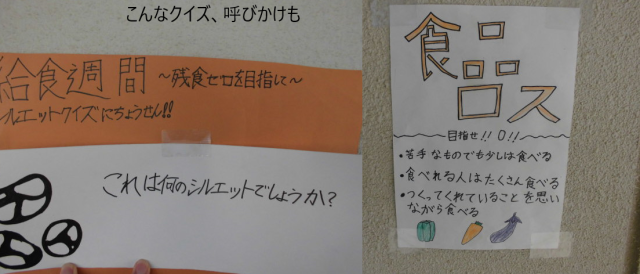 こんなクイズ、呼びかけも
給食週間 ～残食ゼロを目指して～
シルエットクイズにちょうせん!!
これは何のシルエットでしょうか?
食品ロス
目指せ!!0!!
・苦手なものでも少しは食べる
・食べれる人はたくさん食べる
・つくってくれていることを思い
ながら食べる